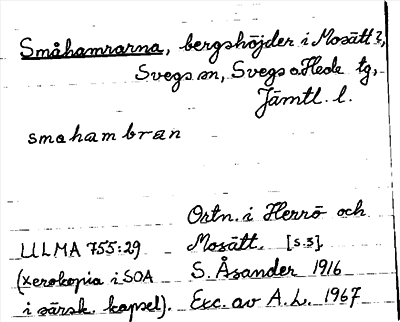 Småhamrarna, bergshöjder i Mosätt?,
Svegs sn, Svegs o. Hede tg,
Jämtl. l.
smahambran
Ortn. i Herrö och
ULMA 755:29 Mosätt. [s.3]
(xerokopia i SOA S. Åsander 1916
i särsk. kapsel). Exc. av A.L. 1967